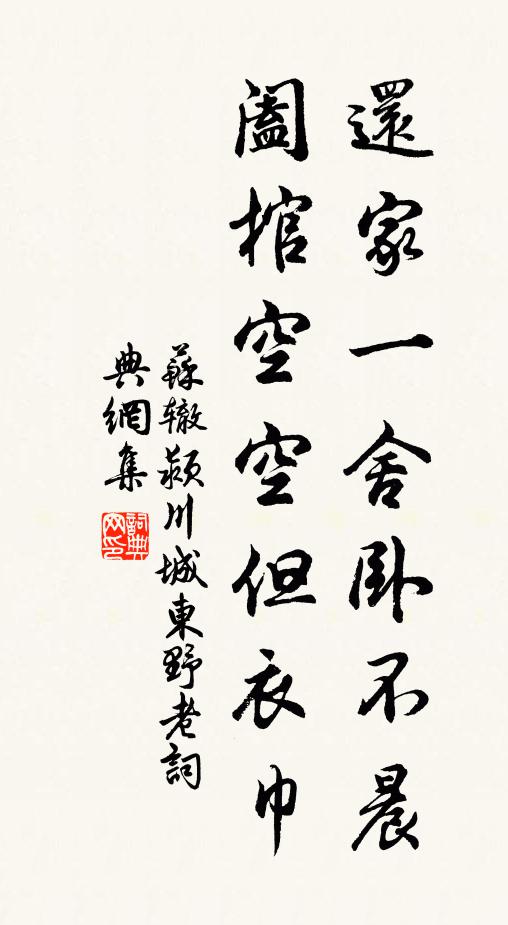 還家一舍臥不晨
闔棺空空但衣巾
蘇轍潁川城東野老詞
典網集
詞典網印